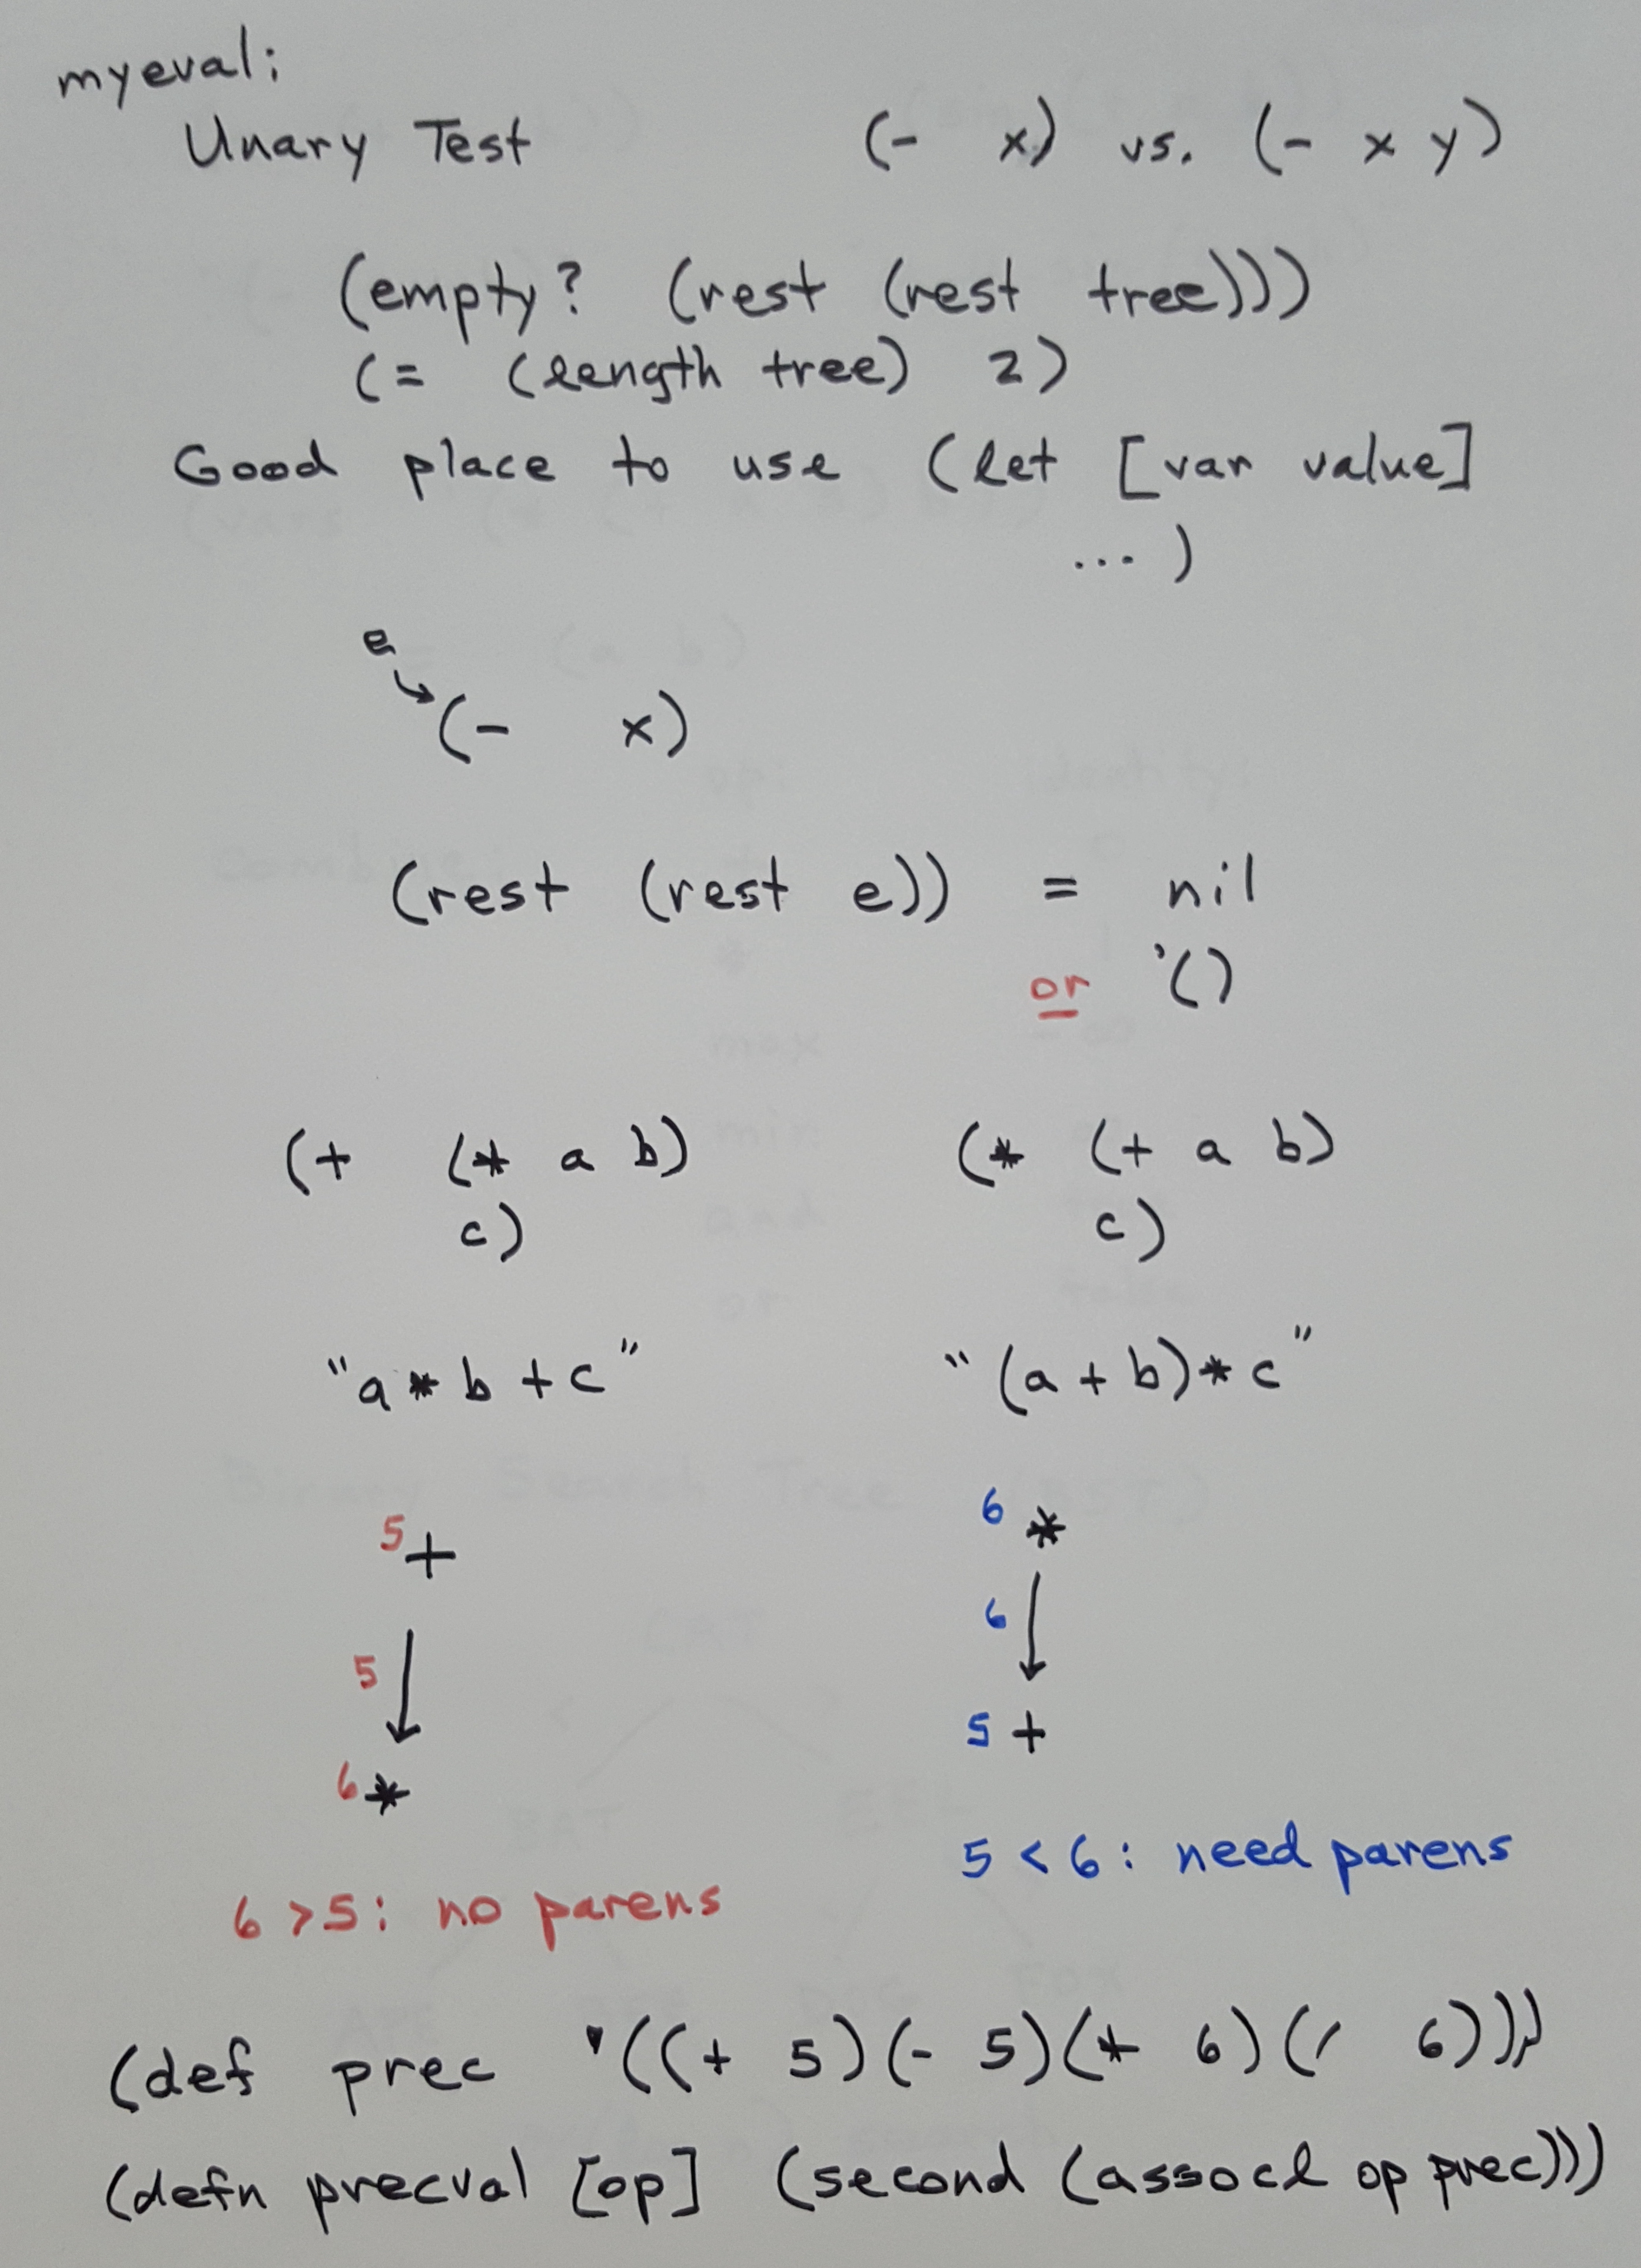 myeval:
Unary Test (- x) vs. (- x y)
(empty? (rest (rest tree)))
(= (length tree) 2)
Good place to use (let [var value]
... )
e
(- x)
(rest (rest e)) = nil
or '()
(+ (* a b) (* (+ a b)
c) c)
"a * b + c" "(a + b) * c"
5 + 6 *
5 6
6 * 5 +
5 < 6: need parens
6 > 5: no parens
(def prec '((+ 5) (- 5) (* 6) (/ 6)))
(defn precval [op] (second (assocl op prec)))